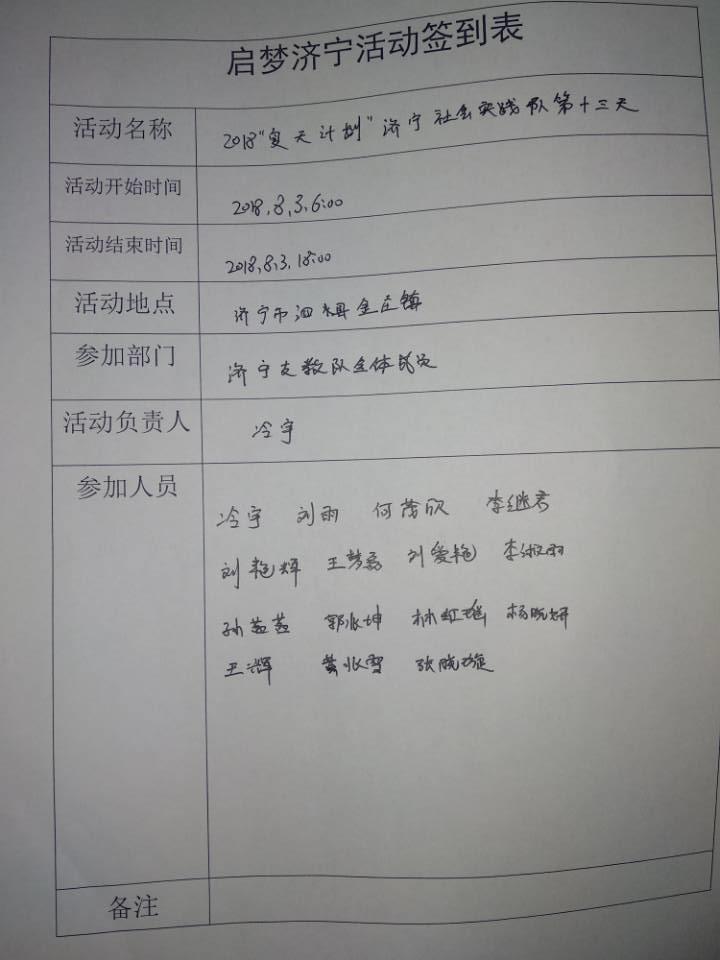 启梦济宁活动签到表
活动名称 2018“夏天计划”济宁社会实践队第十三天
活动开始时间 2018.8.3.6:00
活动结束时间 2018.8.3.18:00
活动地点 济宁市泗水县金庄镇
参加部门 济宁支教队全体成员
活动负责人 冷宇
参加人员
冷宇 刘雨 何茂欣 李继君
刘艳辉 王梦磊 刘爱艳 李淑雨
孙蕊蕊 郭兆坤 林红瑶 杨晓妍
王辉 黄兆雪 张晓璇
备注